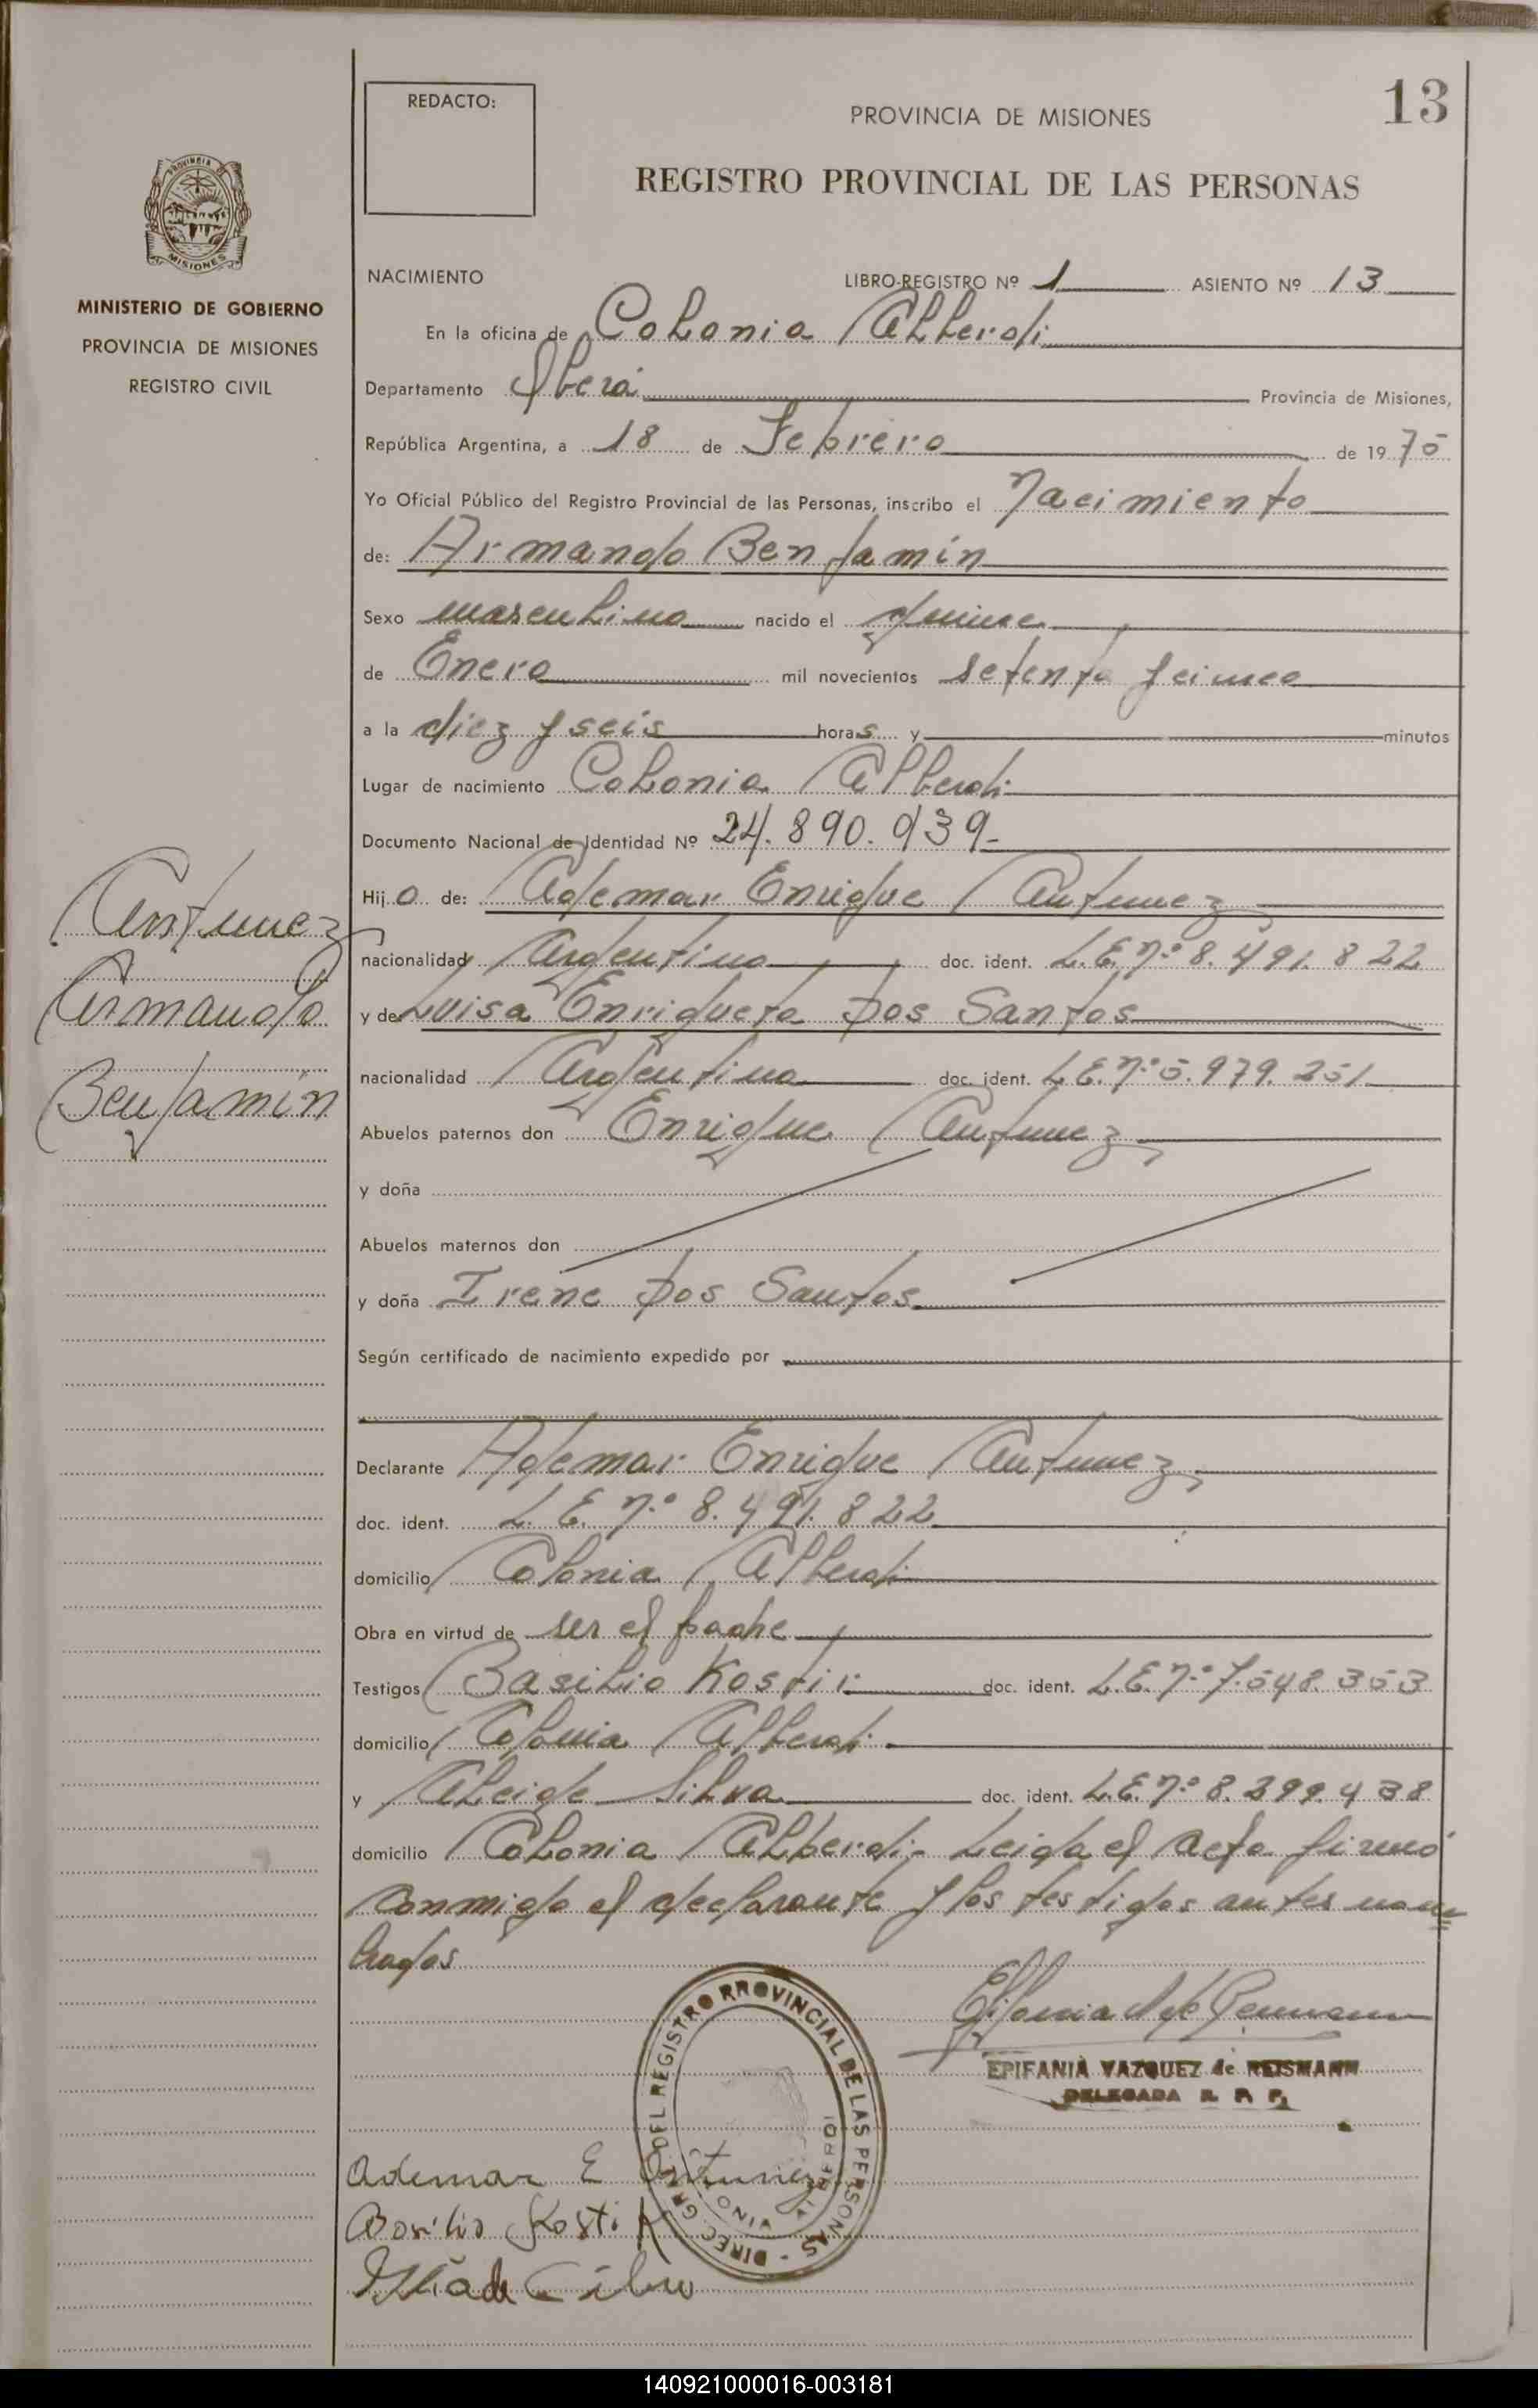 13
REDACTO:
PROVINCIA DE MISIONES
REGISTRO PROVINCIAL DE LAS PERSONAS
PROVINCIA
MISIONES
MINISTERIO DE GOBIERNO
PROVINCIA DE MISIONES
REGISTRO CIVIL
NACIMIENTO LIBRO-REGISTRO Nº 1 ASIENTO Nº 13
En la oficina de Colonia Alberdi
Departamento Oberá Provincia de Misiones,
República Argentina, a 18 de Febrero de 1975
Yo Oficial Público del Registro Provincial de las Personas, inscribo el Nacimiento
de: Armando Benjamín
Sexo masculino nacido el quince
de Enero mil novecientos setenta y cinco
a la diez y seis horas y minutos
Lugar de nacimiento Colonia Alberdi
Documento Nacional de Identidad Nº 24.890.939-
Hijo de: Ademar Enrique Antunez
nacionalidad Argentino doc. ident. L.E.Nº 8.491.822
y de Luisa Enriqueta Dos Santos
nacionalidad Argentina doc. ident. L.E.Nº 5.979.251
Abuelos paternos don Enrique Antunez
y doña
Abuelos maternos don
y doña Irene Dos Santos
Según certificado de nacimiento expedido por
Declarante Ademar Enrique Antunez
doc. ident. L.E.Nº 8.491.822
domicilio Colonia Alberdi
Obra en virtud de ser el padre
Testigos Basilio Kostir doc. ident. L.E.Nº 7.548.353
domicilio Colonia Alberdi
y Alcide Silva doc. ident. L.E.Nº 8.299.438
domicilio Colonia Alberdi- Leida el acta firmó
conmigo el declarante y los testigos antes nom=
brados
Antunez
Armando
Benjamín
EPIFANIA VAZQUEZ de REISMANN
DELEGADA R. P. P.
DIREC. GRAL. DEL REGISTRO PROVINCIAL DE LAS PERSONAS
Ademar E Antunez
Basilio Kostir
140921000016-003181